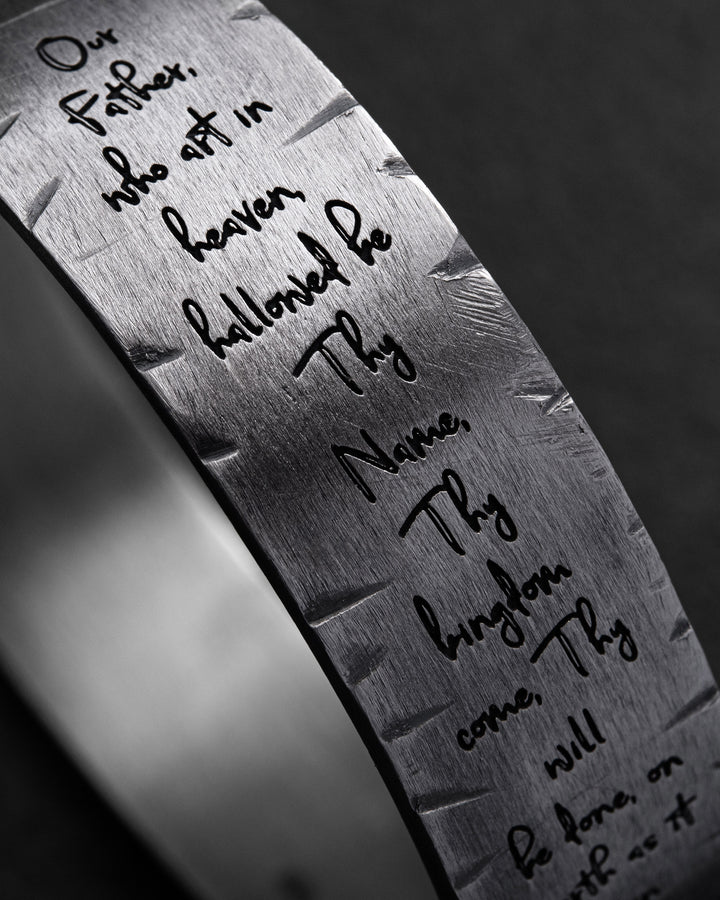 Our
Father,
who art in
heaven,
hallowed be
Thy
Name,
Thy
kingdom
come, Thy
will
be done, on
as it